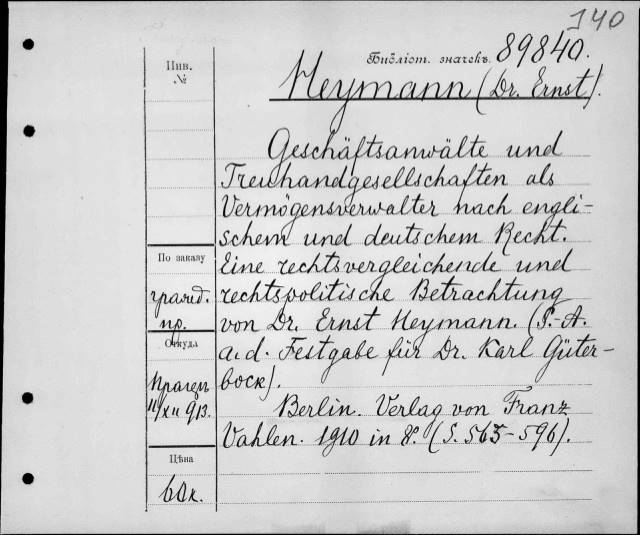 140
Библіот. значекъ 89840.
Инв.
№
Heymann (Dr. Ernst).
Geschäftsanwälte und
Treuhandgesellschaften als
Vermögensverwalter nach engli-
schem und deutschem Recht.
Eine rechtsvergleichende und
rechtspolitische Betrachtung
von Dr. Ernst Heymann. (S.-A.
a. d. Festgabe für Dr. Karl Güter-
bock).
Berlin. Verlag von Franz
Vahlen. 1910 in 8°. (S. 563-596).
По заказу
гражд.
пр.
Откуда
11/XII 913.
Цѣна